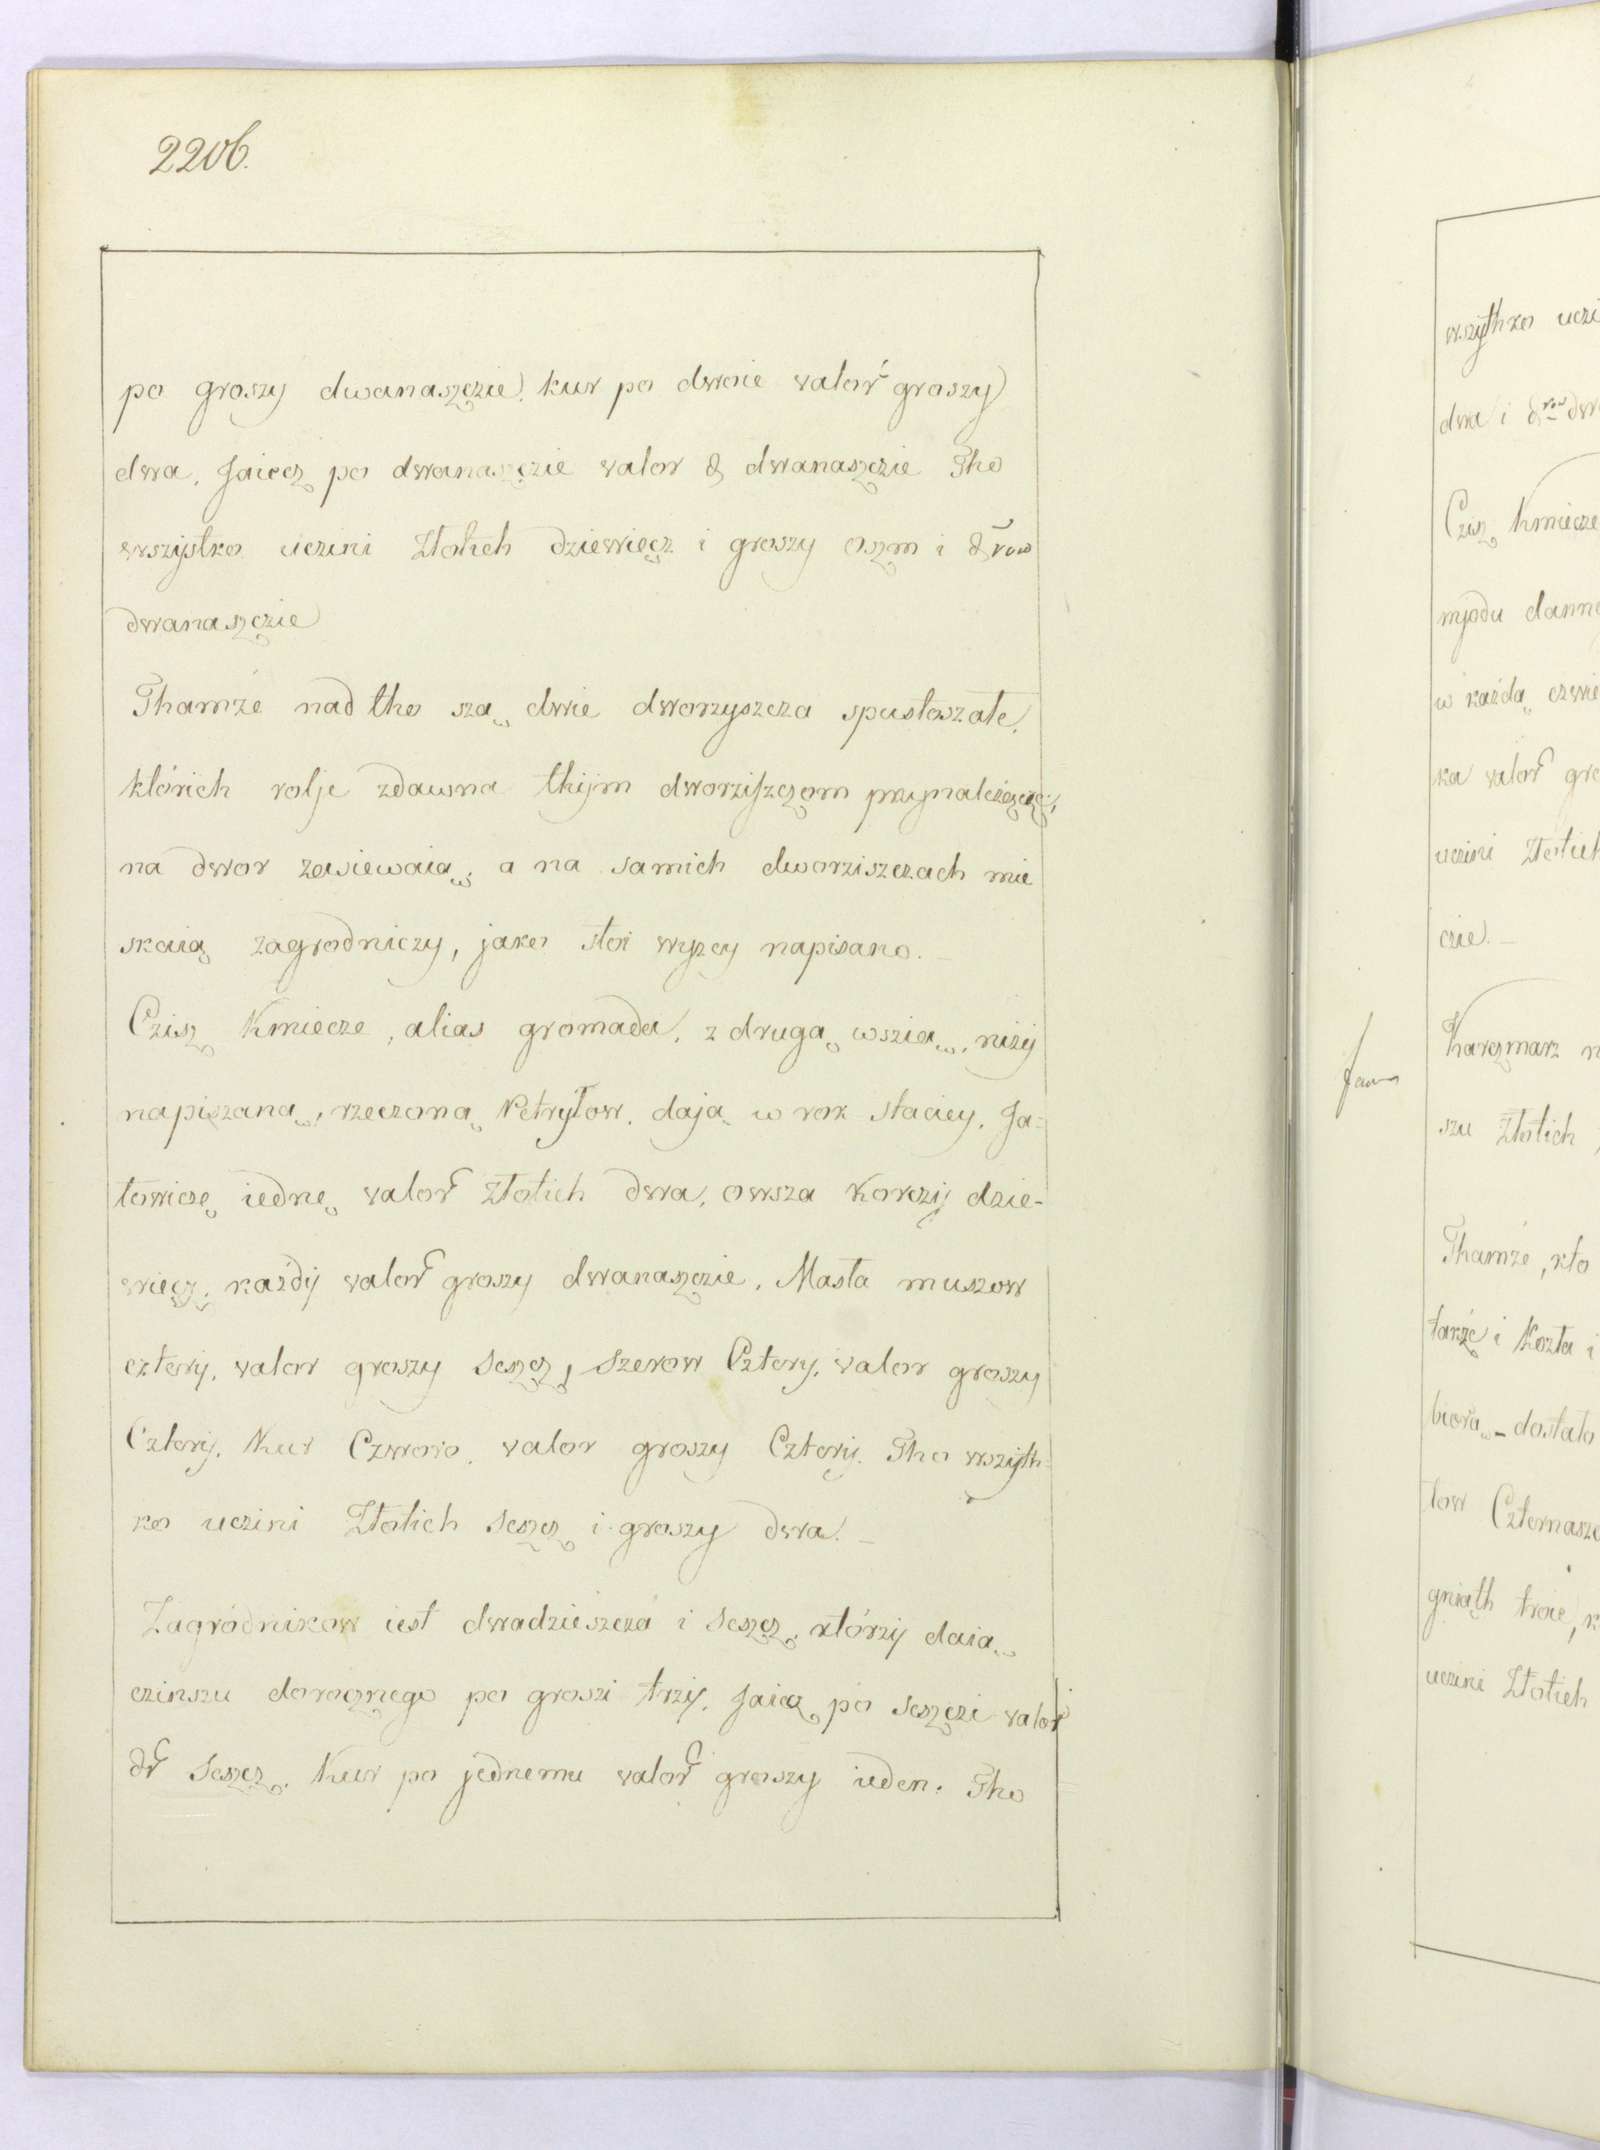 2206.
po groszy dwanaszczie. kur po dwoie valor groszy
dwa. Jaiecz po dwanaszczie valor d dwanaszczie Tho
wszystko uczini Złotich dziewięcz i groszy oszm i d row
dwanaszczie
Thamże nad tho sza dwie dworzyszcza spustoszałe,
którich rolje zdawna thijm dworziszczom przynależęcze,
na dwor zasiewaią, a na samich dworziszczach mie
skaią zagrodniczy, jako stoi wyzey napisano. _
Czisz Kmiecze, alias gromada, z drugą wszią, niżij
napiszaną, rzeczoną Petryłow. dają w rok staciey. Ja=
łowiczę iednę valor Złotich dwa, owsza Korczij dzie-
więcz, każdij valor groszy dwanaszczie. Masła muszow
cztery, valor groszy seszcz, szerow Cztery, valor groszy
Czterij. Kur Czworo, valor groszy Czterij. Tho wszijth=
ko uczini Złotich seszcz i groszy dwa. _
Zagródnikow iest dwadzieszcza i seszcz, którzij daią
czinszu dorocznego po groszi trzij, Jaiecz po seszczi valor
dr seszcz. Kur po jednemu valor groszy ieden. Tho
wszythko uczi
dwa i d row dwa
Czisz Kmiecze
mjodu danne
w każdą czwie
ka valor gro
uczini Złotich
czie. _
Karczmarz n
szu Złotich
Thamże, kto
także i Kozła i
biorą - dostało
łow Czternaszc
gniąth troie, k
uczini Złotich